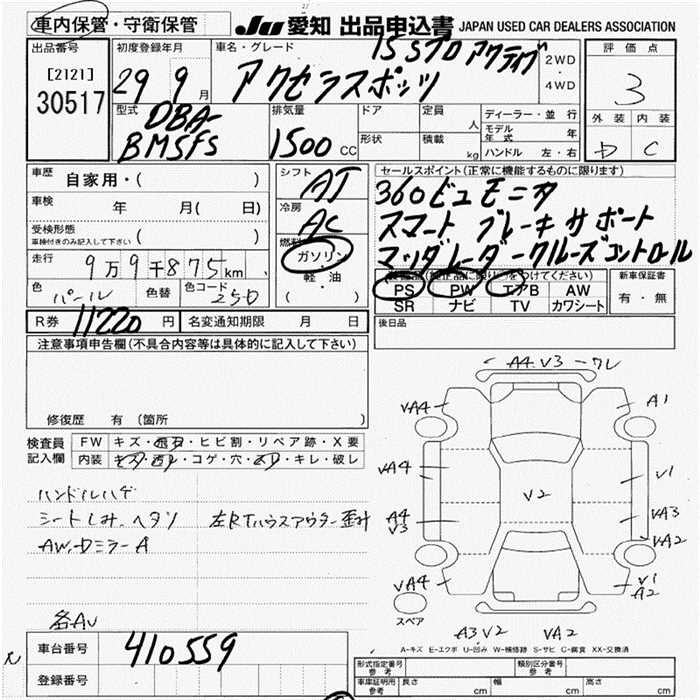 車内保管・守衛保管
JU 愛知 出品申込書 JAPAN USED CAR DEALERS ASSOCIATION
出品番号
[2121]
30517
初度登録年月
29 9月
車名・グレード
15Sプロアクティブ
アクセラスポーツ
2WD
・
4WD
評価点
3
外装 内装
D C
型式
DBA-
BM5FS
排気量
1500 CC
ドア
形状
定員 人
積載 kg
ディーラー・並行
モデル年式 年
ハンドル 左・右
車歴 自家用・( )
車検 年 月( 日)
受検形態
車検付きのみ記入して下さい ( )
走行 9万9千875km
色 パール 色替 色コード 25D
シフト AT
冷房 AC
燃料
ガソリン
軽・油
( )
セールスポイント(正常に機能するものに限ります)
360ビュモニタ
スマートブレーキサポート
マツダレーダークルーズコントロール
装備品(純正品に限り○をつけてください)
PS PW エアB AW
SR ナビ TV カワシート
新車保証書
有・無
R券 11220円 名変通知期限 月 日
後日品
注意事項申告欄(不具合内容等は具体的に記入して下さい)
修復歴 有 (箇所 )
検査員
記入欄
FW キズ・飛石・ヒビ割・リペア跡・X要
内装 キズ・汚レ・コゲ・穴・スレ・キレ・破レ
ハンドルハゲ
シートしみ、ヘタリ 左RTハウスアウター歪み
AW、DミラーA
各AU
A4 V3 ワレ
UA4
A1
UA4
V1
V2
A4
V3
UA3
UA2
UA4
V1
A2
スペア
A3 V2 UA2
A-キズ E-エクボ U-凹み W-補修跡 S-サビ C-腐食 XX-交換済
車台番号 410559
登録番号
形式指定番号
参考
類別区分番号
参考
車庫証明用
参考
長さ cm 幅 cm 高さ cm